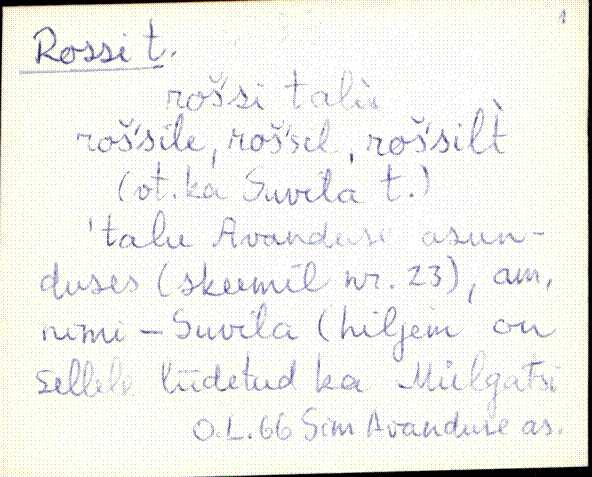 1
Rossi t.
roš'si talù
roš'sile, roš'sel, roš'silt̀
(vt. ka Suvila t.)
'talu Avanduse asun-
duses (skeemil nr. 23), am.
nimi – Suvila (hiljem on
sellele liidetud ka Mülgatsi
O.L. 66 Sim Avanduse as.